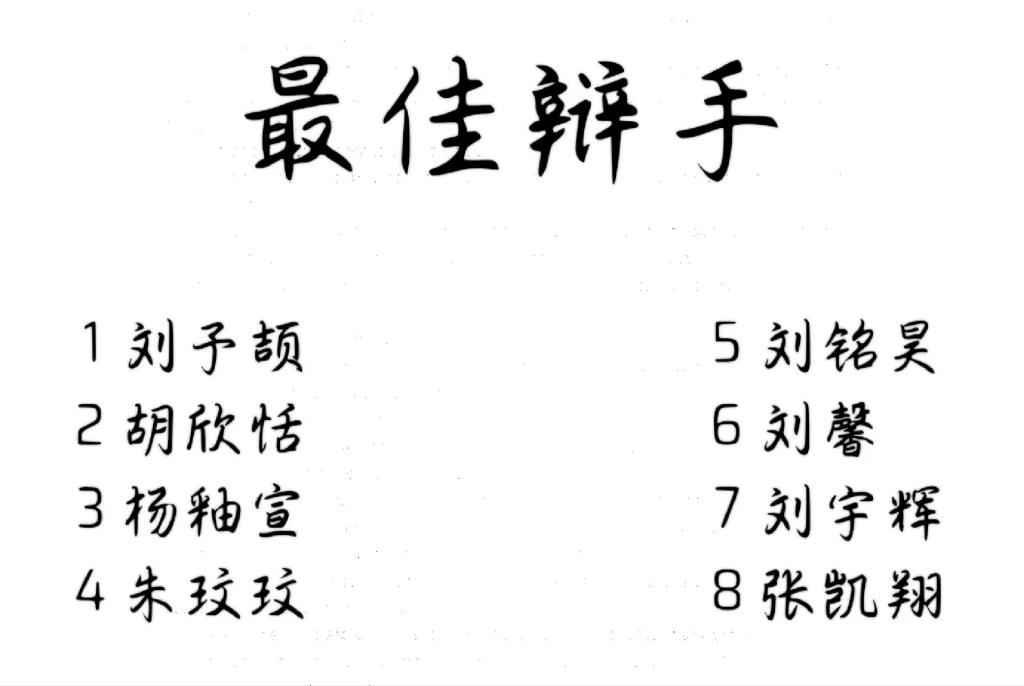 最佳辩手
1 刘予颉
2 胡欣恬
3 杨釉宣
4 朱玟玟
5 刘铭昊
6 刘馨
7 刘宇辉
8 张凯翔